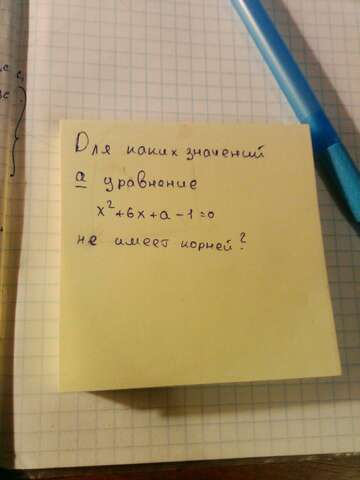 Для каких значений
a уравнение
x²+6x+a-1=0
не имеет корней?